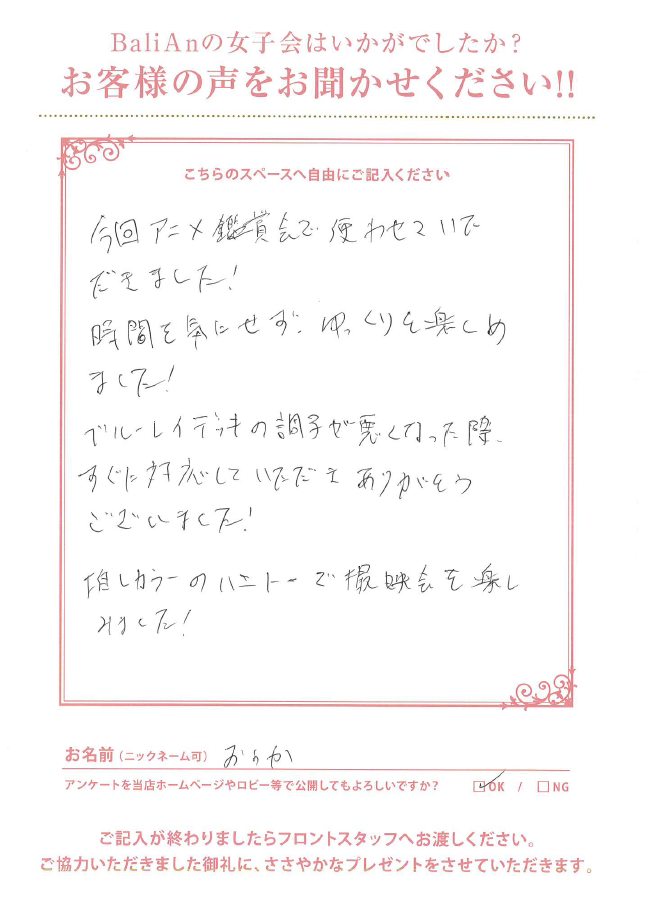 BaliAnの女子会はいかがでしたか?
お客様の声をお聞かせください!!
こちらのスペースへ自由にご記入ください
今回アニメ鑑賞会で使わせていた
だきました!
時間を気にせず、ゆっくりと楽しめ
ました!
ブルーレイデッキの調子が悪くなった際、
すぐに対応していただきありがとう
ございました!
推しカラーのハニトーで撮映会を楽し
みました!
お名前(ニックネーム可)
アンケートを当店ホームページやロビー等で公開してもよろしいですか? ☑OK / □NG
ご記入が終わりましたらフロントスタッフへお渡しください。
ご協力いただきました御礼に、ささやかなプレゼントをさせていただきます。